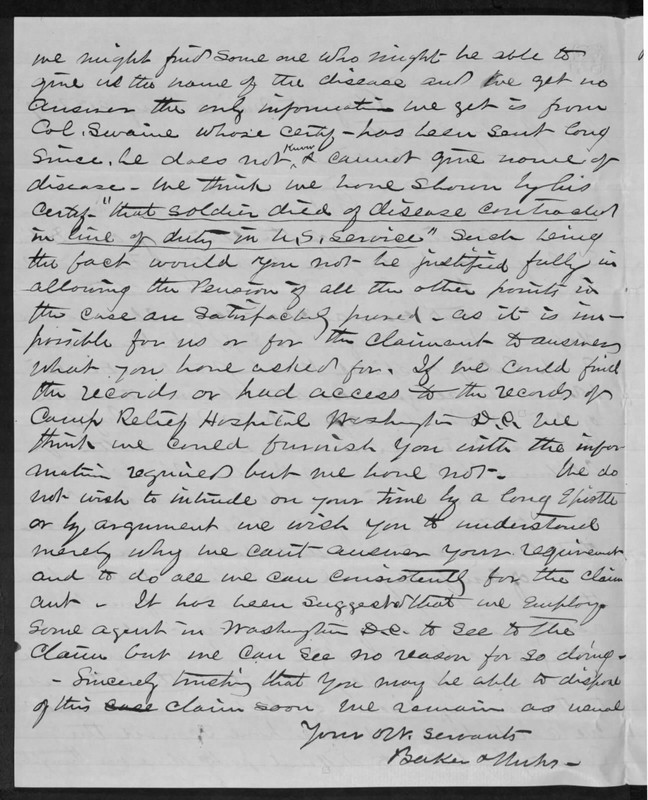 we might find some one who might be able to
give us the name of the disease and we get no
answer the only information we get is from
Col. Swaine whose certf - has been sent long
since. he does not know & cannot give name of
disease - we think we have shown by his
certf - "that soldier died of disease contracted
in line of duty in U.S. service" Such being
the fact would you not be justified fully in
allowing the Pension if all the other points in
the case are satisfactorily proved - as it is im-
possible for us or for the claimant to answer
what you have asked for. If we could find
the records or had access to the records of
Camp Relief Hospital Washington D.C. we
think we could furnish you with the infor
mation required but we have not - We do
not wish to intrude on your time by a long Epistle
or by argument we wish you to understand
merely why we can't answer your requirement
and to do all we can consistently for the claim
ant - It has been suggested that we employ
some agent in Washington D.C. to see to the
claim but we can see no reason for so doing -
- Sincerely trusting that you may be able to dispose
of this case claim soon we remain as usual
Your Obt. Servants
Baker &